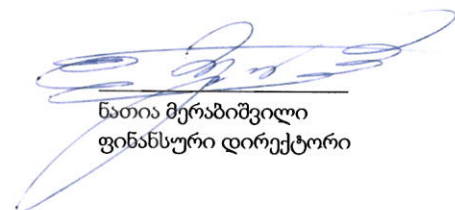 ნათია მერაბიშვილი
ფინანსური დირექტორი